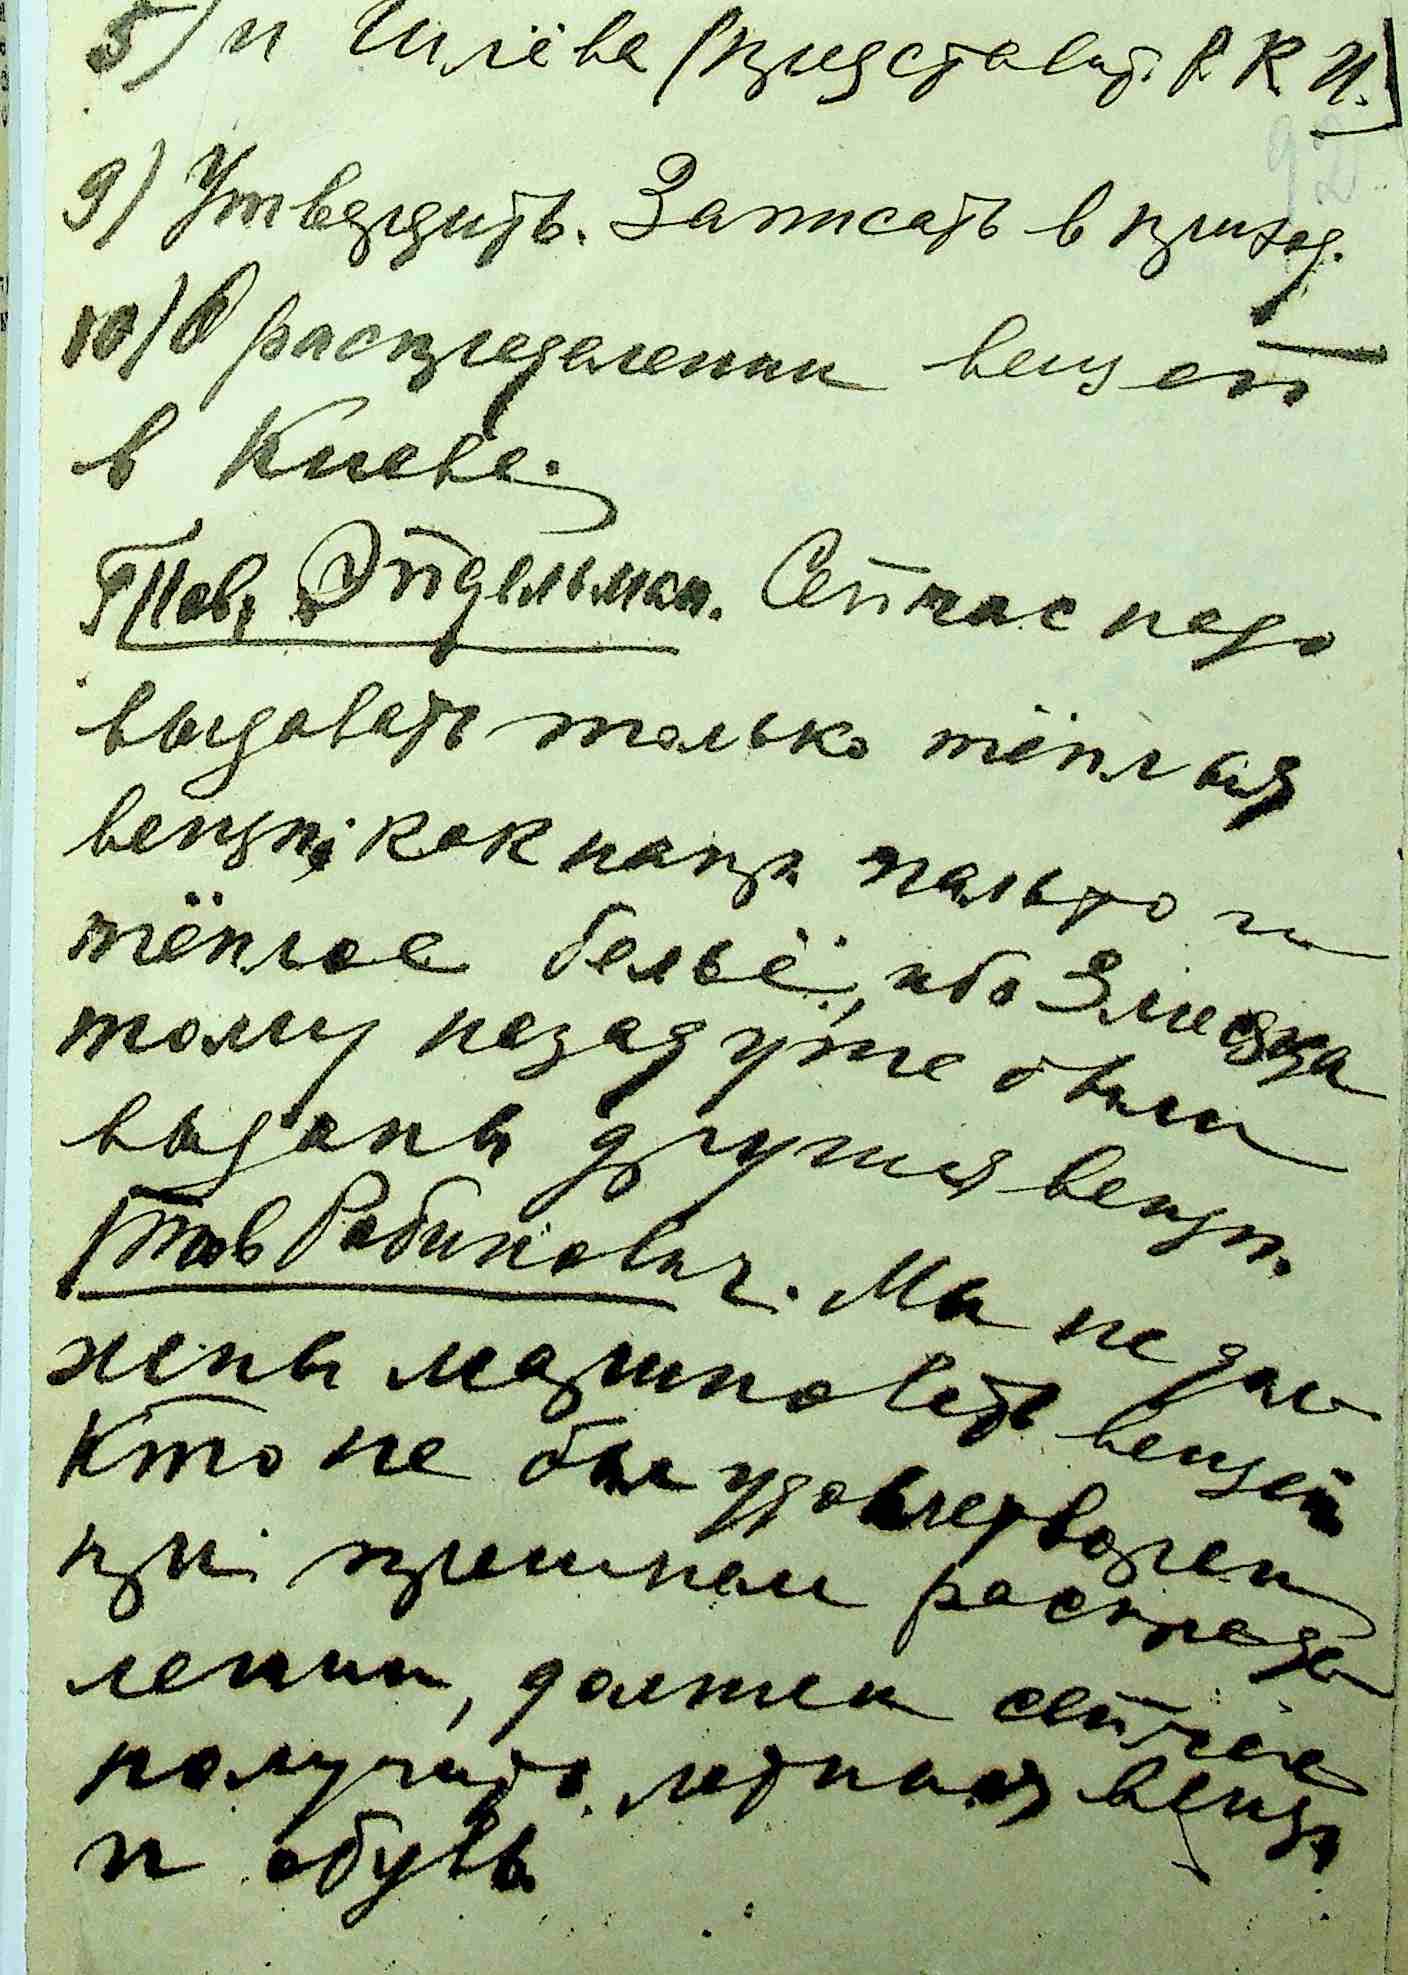 5) и Шлёва (представит. Р. К. И.)
92
9) Утвердить. Записать в приход.
10) О распределении вещей
в Киеве.
Тов. Эйдельман. Сейчас надо
выдовать только тёплыя
вещи, как напр. пальто и
тёплое бельё, ибо 3 месяца
тому назад уже были
выданы другия вещи.
Тов Рабинович. Мы не дол-
жны мариновать вещей
Кто не был удовлетворен
при прешлом распреде
лении, должен сейчас
получить летныя вещи
и обувь